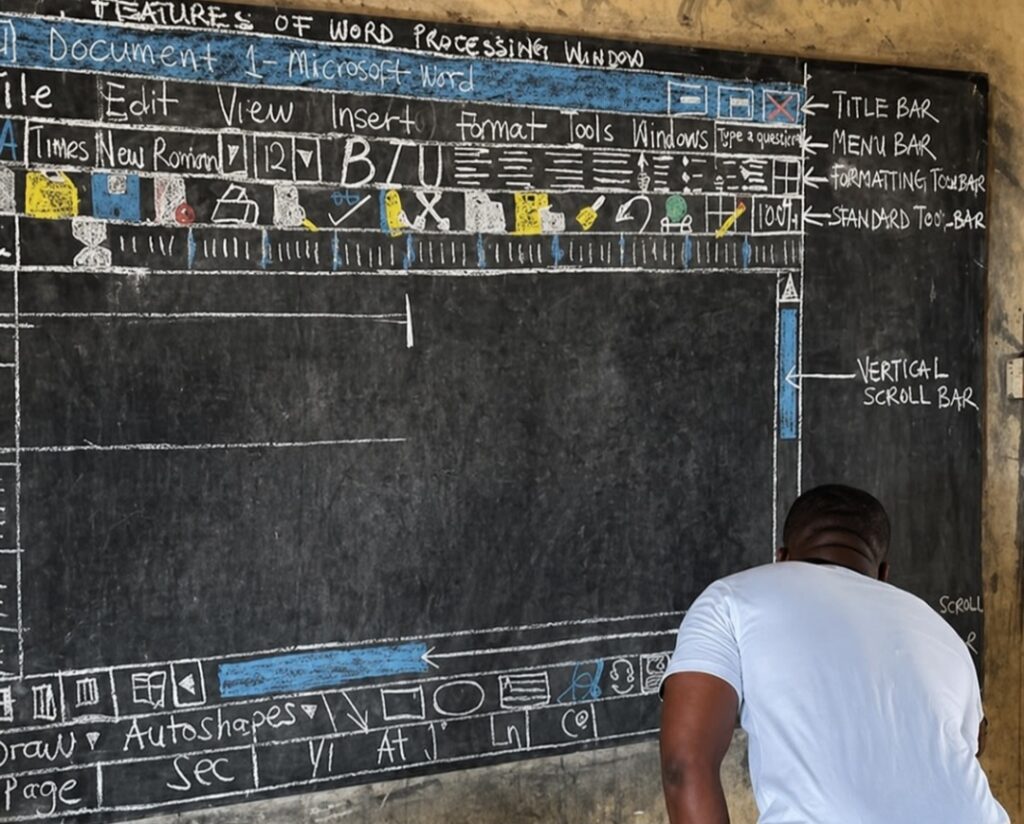 FEATURES OF WORD PROCESSING WINDOW
Document 1- Microsoft Word
TITLE BAR
Edit View Insert Format Tools Windows Type a question
MENU BAR
A Times New Roman 12 B I U
FORMATTING TOOLBAR
100%
STANDARD TOOL-BAR
VERTICAL
SCROLL BAR
SCROLL
Autoshapes
Page Sec Y1 At Ln